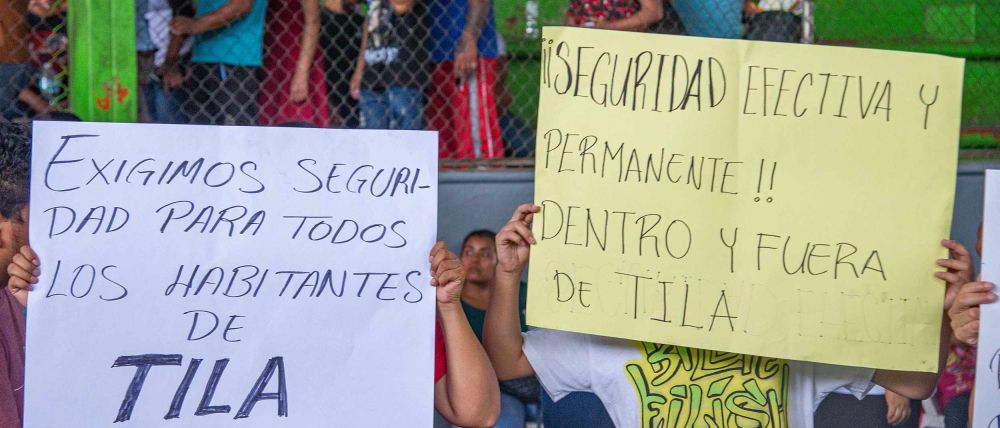 EXIGIMOS SEGURI-
DAD PARA TODOS
LOS HABITANTES
DE
TILA
¡¡SEGURIDAD EFECTIVA Y
PERMANENTE!!
DENTRO Y FUERA
DE TILA